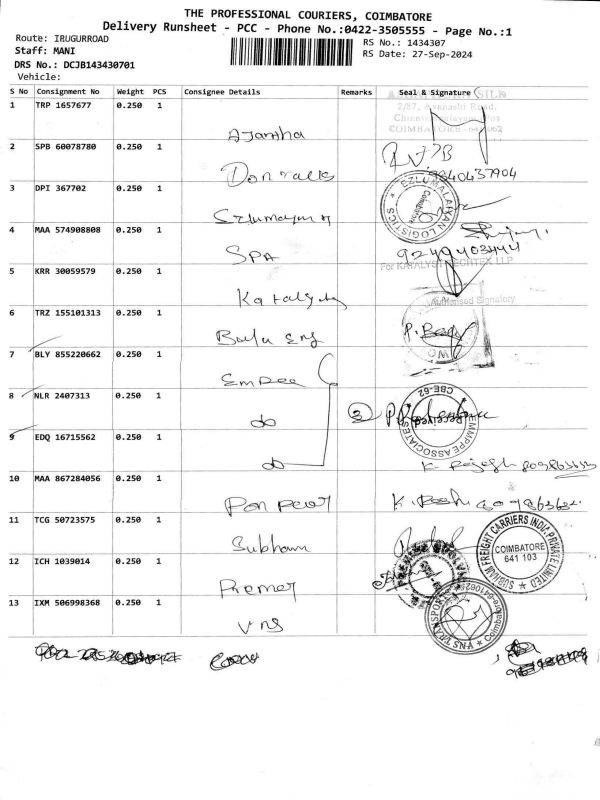 THE PROFESSIONAL COURIERS, COIMBATORE
Delivery Runsheet - PCC - Phone No.:0422-3505555 - Page No.:1
Route: IRUGURROAD
RS No.: 1434307
Staff: MANI
RS Date: 27-Sep-2024
DRS No.: DCJB143430701
Vehicle:
S No Consignment No Weight PCS Consignee Details Remarks Seal & Signature
SILK
2/87, Avanashi Road,
COIMBATORE
1 TRP 1657677 0.250 1 Ajantha
2 SPB 60078780 0.250 1 Don Talks
9840437904
3 DPI 367702 0.250 1
EZLUMALAIYAN LOGISTICS
Coimbatore
4 MAA 574908808 0.250 1 SPA
9249403444
For KATALYST TECHTEX LLP
Authorised Signatory
5 KRR 30059579 0.250 1
6 TRZ 155101313 0.250 1 Balu Eng
7 BLY 855220662 0.250 1 Empee
8 NLR 2407313 0.250 1 do
③
CBE-62
Received
ASSOCIATES
9 EDQ 16715562 0.250 1 do
K. Rajesh
10 MAA 867284056 0.250 1 Pon pear
11 TCG 50723575 0.250 1 Subham
SUBHAM FREIGHT CARRIERS INDIA PRIVATE LIMITED
COIMBATORE
641 103
12 ICH 1039014 0.250 1 Premer
13 IXM 506998368 0.250 1 VNS
VNS TRANSPORT
Coimbatore